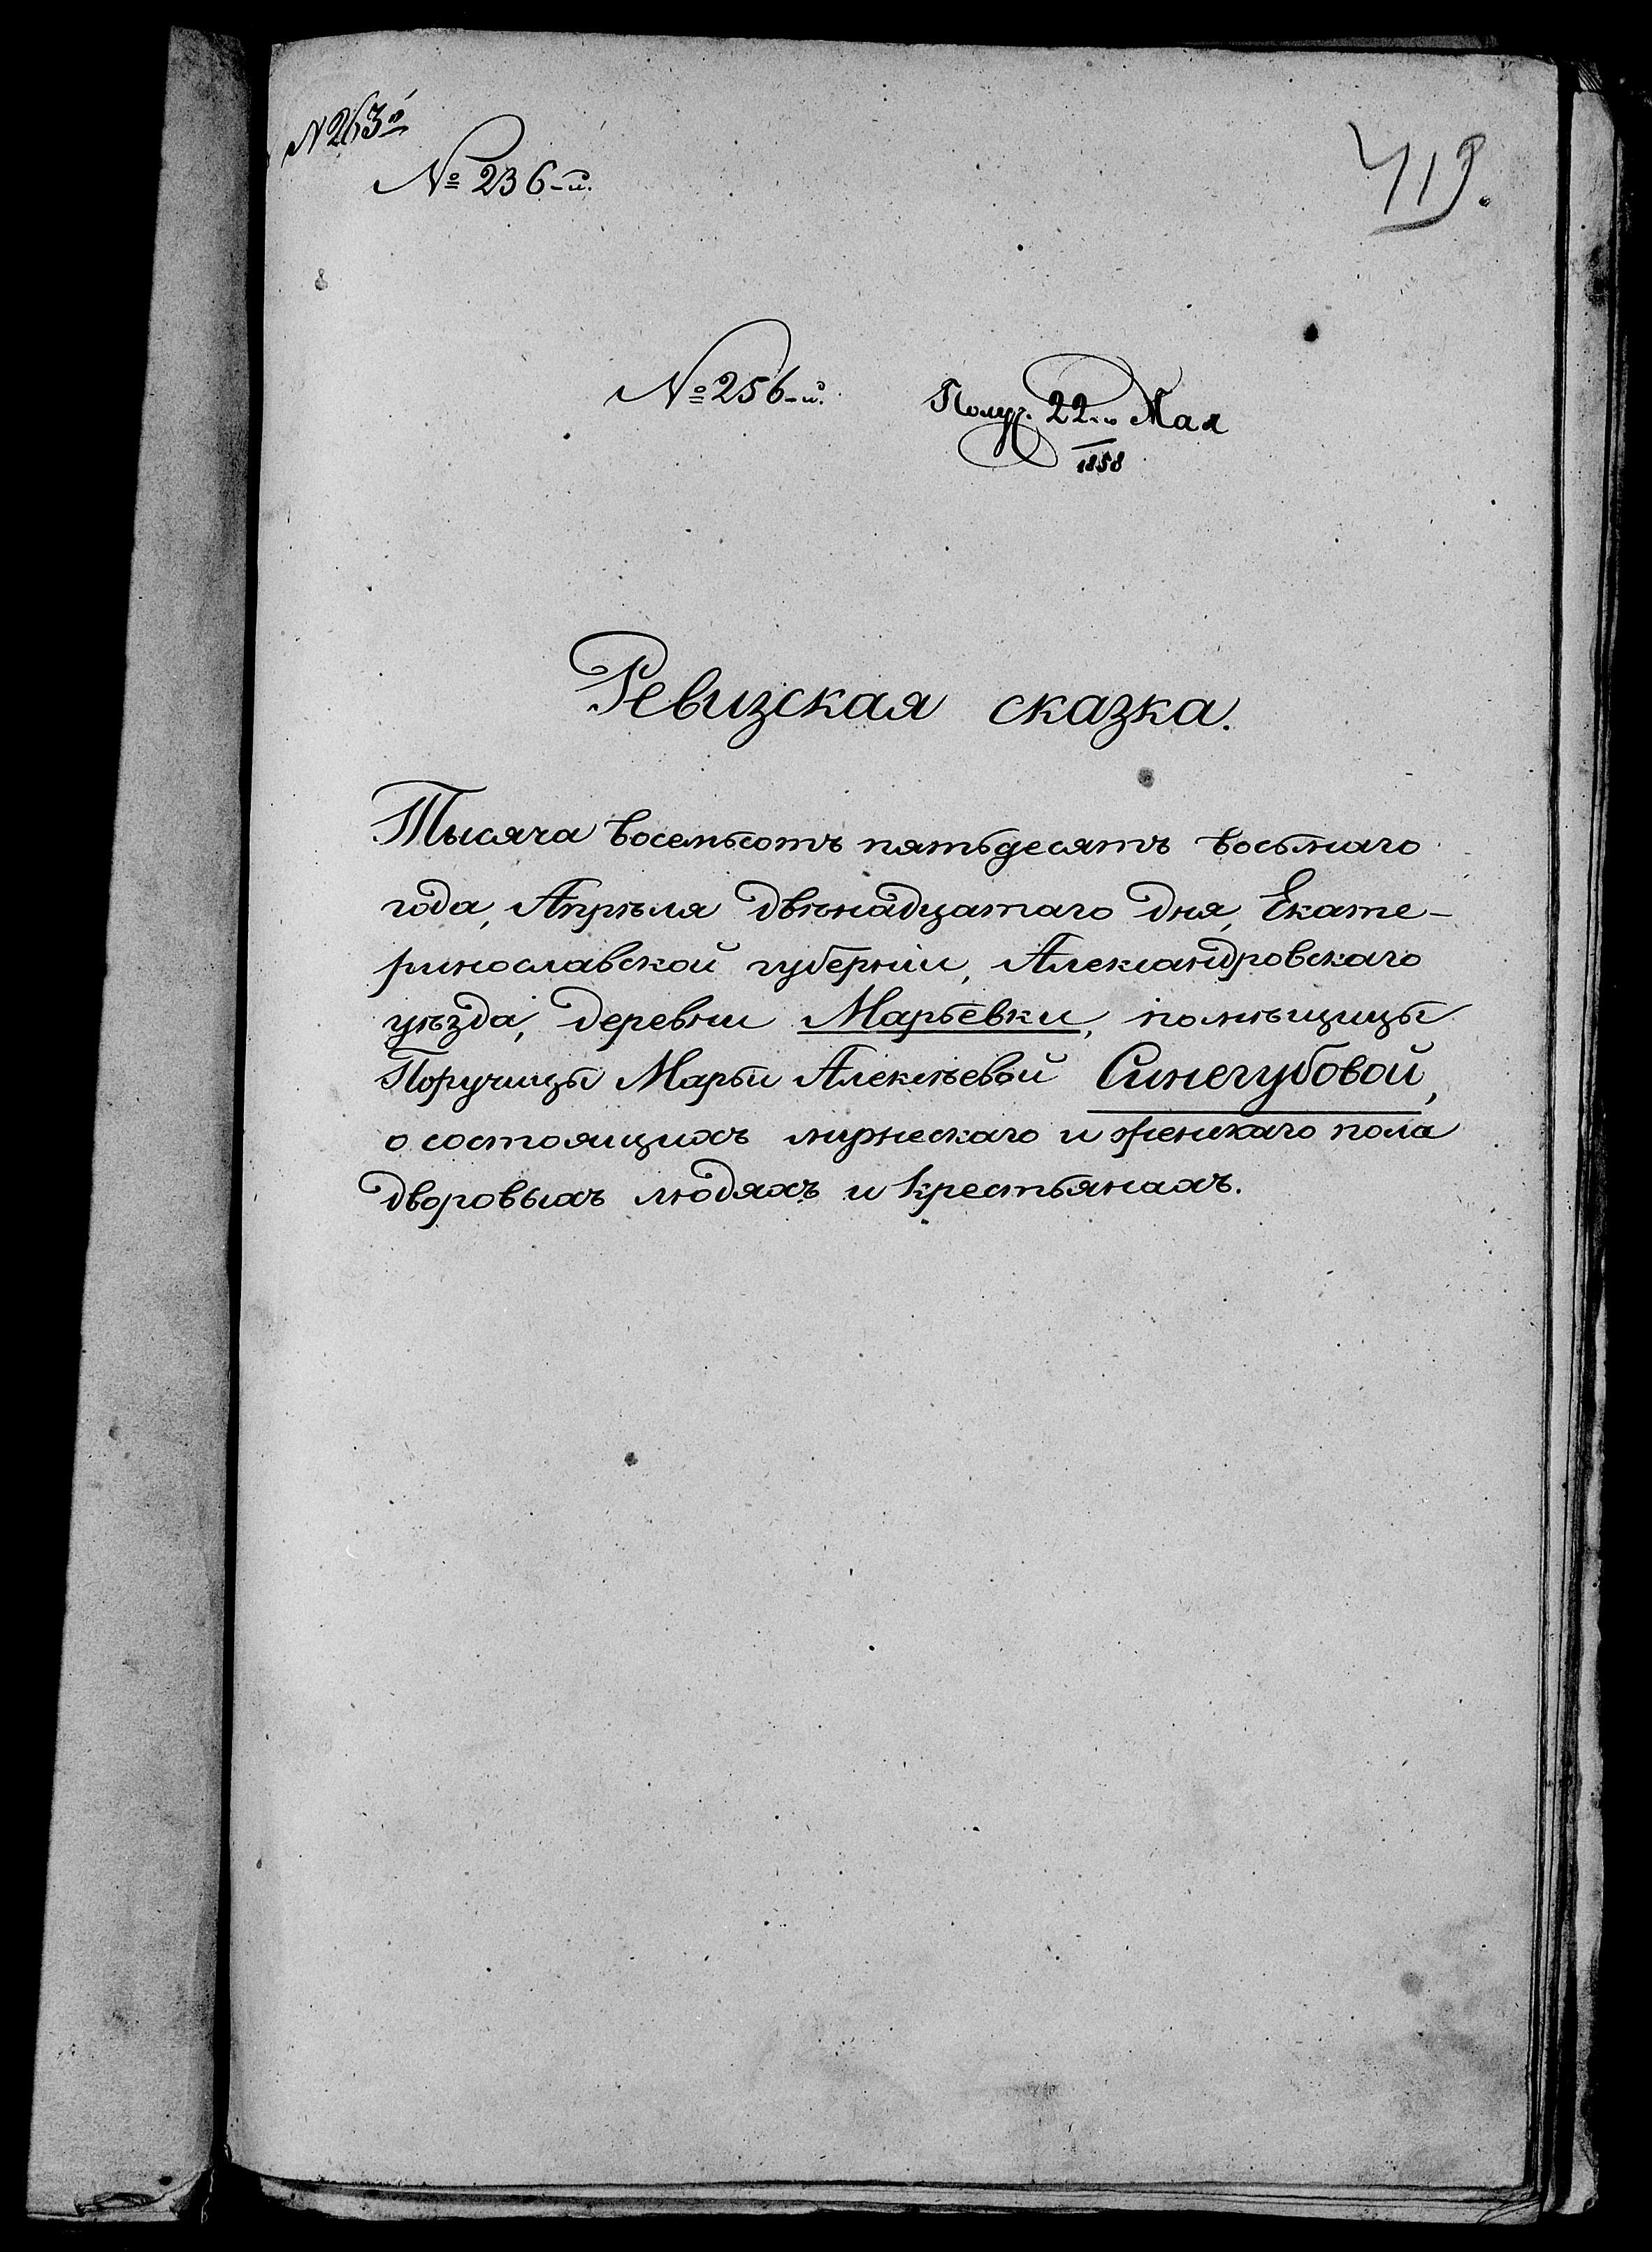 № 263й
№ 236-й.
419.
№ 256-й.
Получ. 22-го Мая
1858
Ревизская сказка.
Тысяча восемьсотъ пятьдесятъ восьмаго
года, Апрѣля двѣнадцатаго дня, Екате-
ринославской губерніи, Александровскаго
уѣзда, деревни Марьевки, помѣщицы
Поручицы Марьи Алексѣевой Синегубовой,
о состоящихъ мужескаго и женскаго пола
дворовыхъ людяхъ и крестьянахъ.